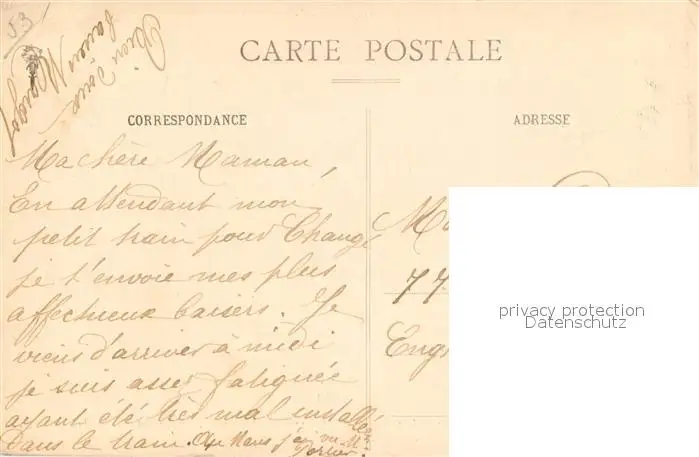 53
Bien doux
Margot
CARTE POSTALE
CORRESPONDANCE
ADRESSE
Ma chère Maman,
En attendant mon
petit train pour Changé
je t'envoie mes plus
affectueux baisers. Je
viens d'arriver à midi
je suis assez fatiguée
ayant été très mal installée
dans le train. Au Mans j'ai vu Mr
77
privacy protection
Datenschutz